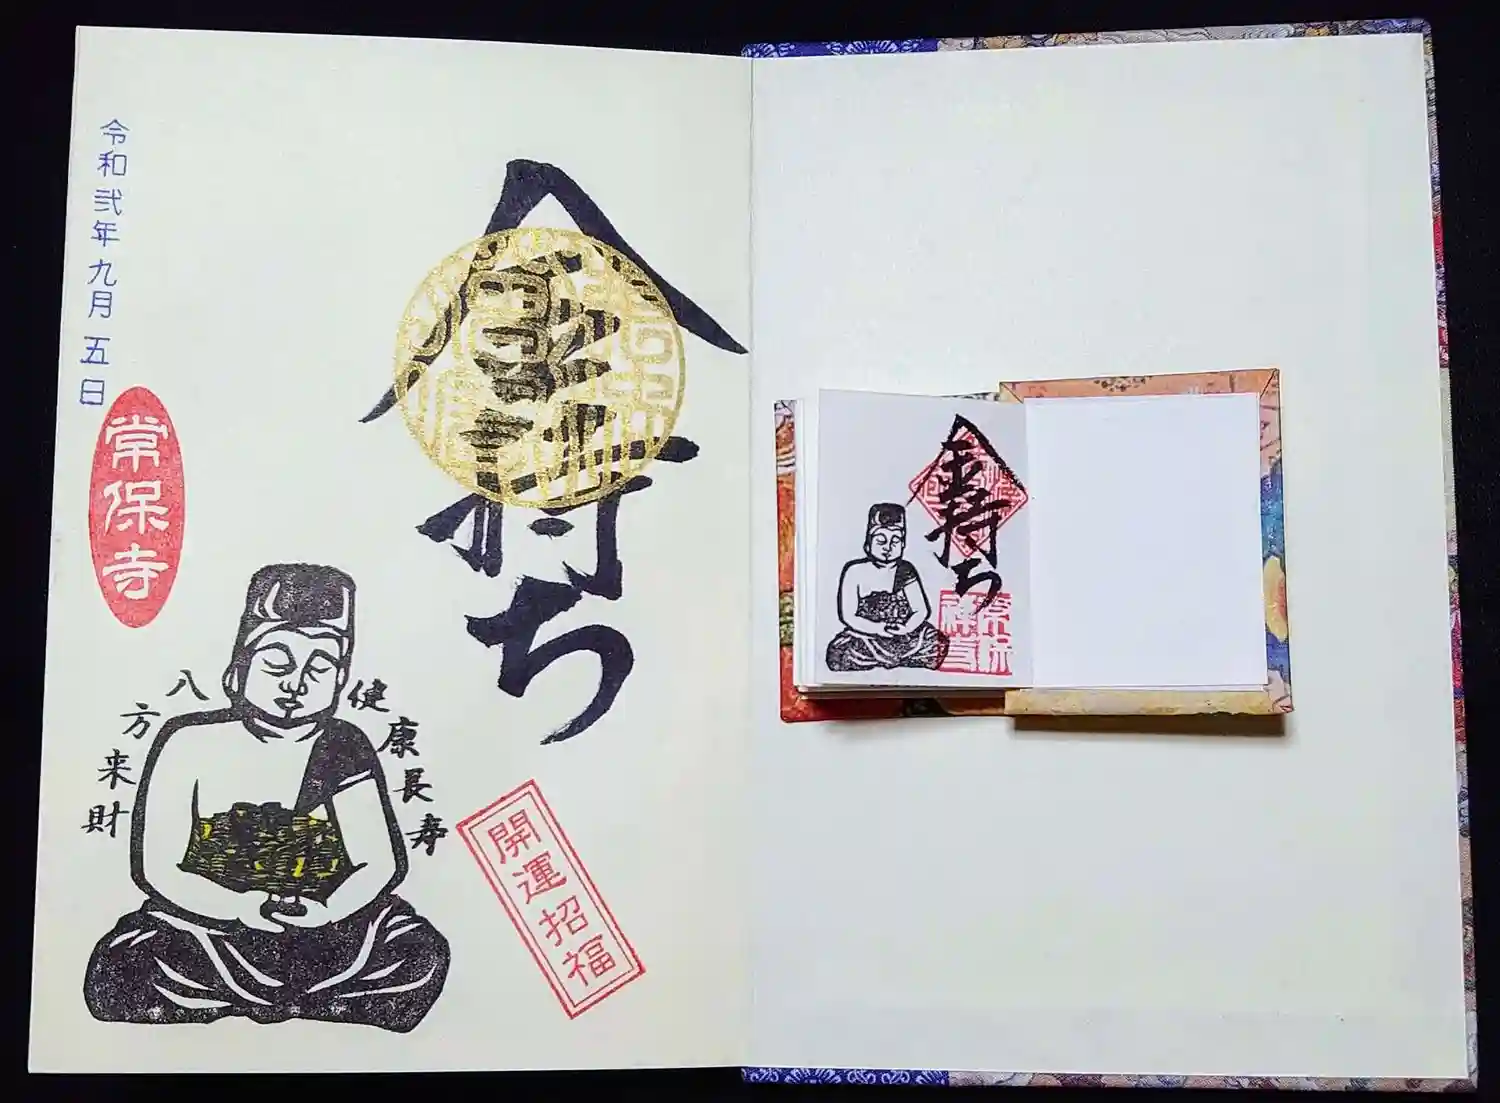 金持ち
開運招福
健康長寿
八方来財
令和弐年九月五日
常保寺
金持ち
常保
禅寺